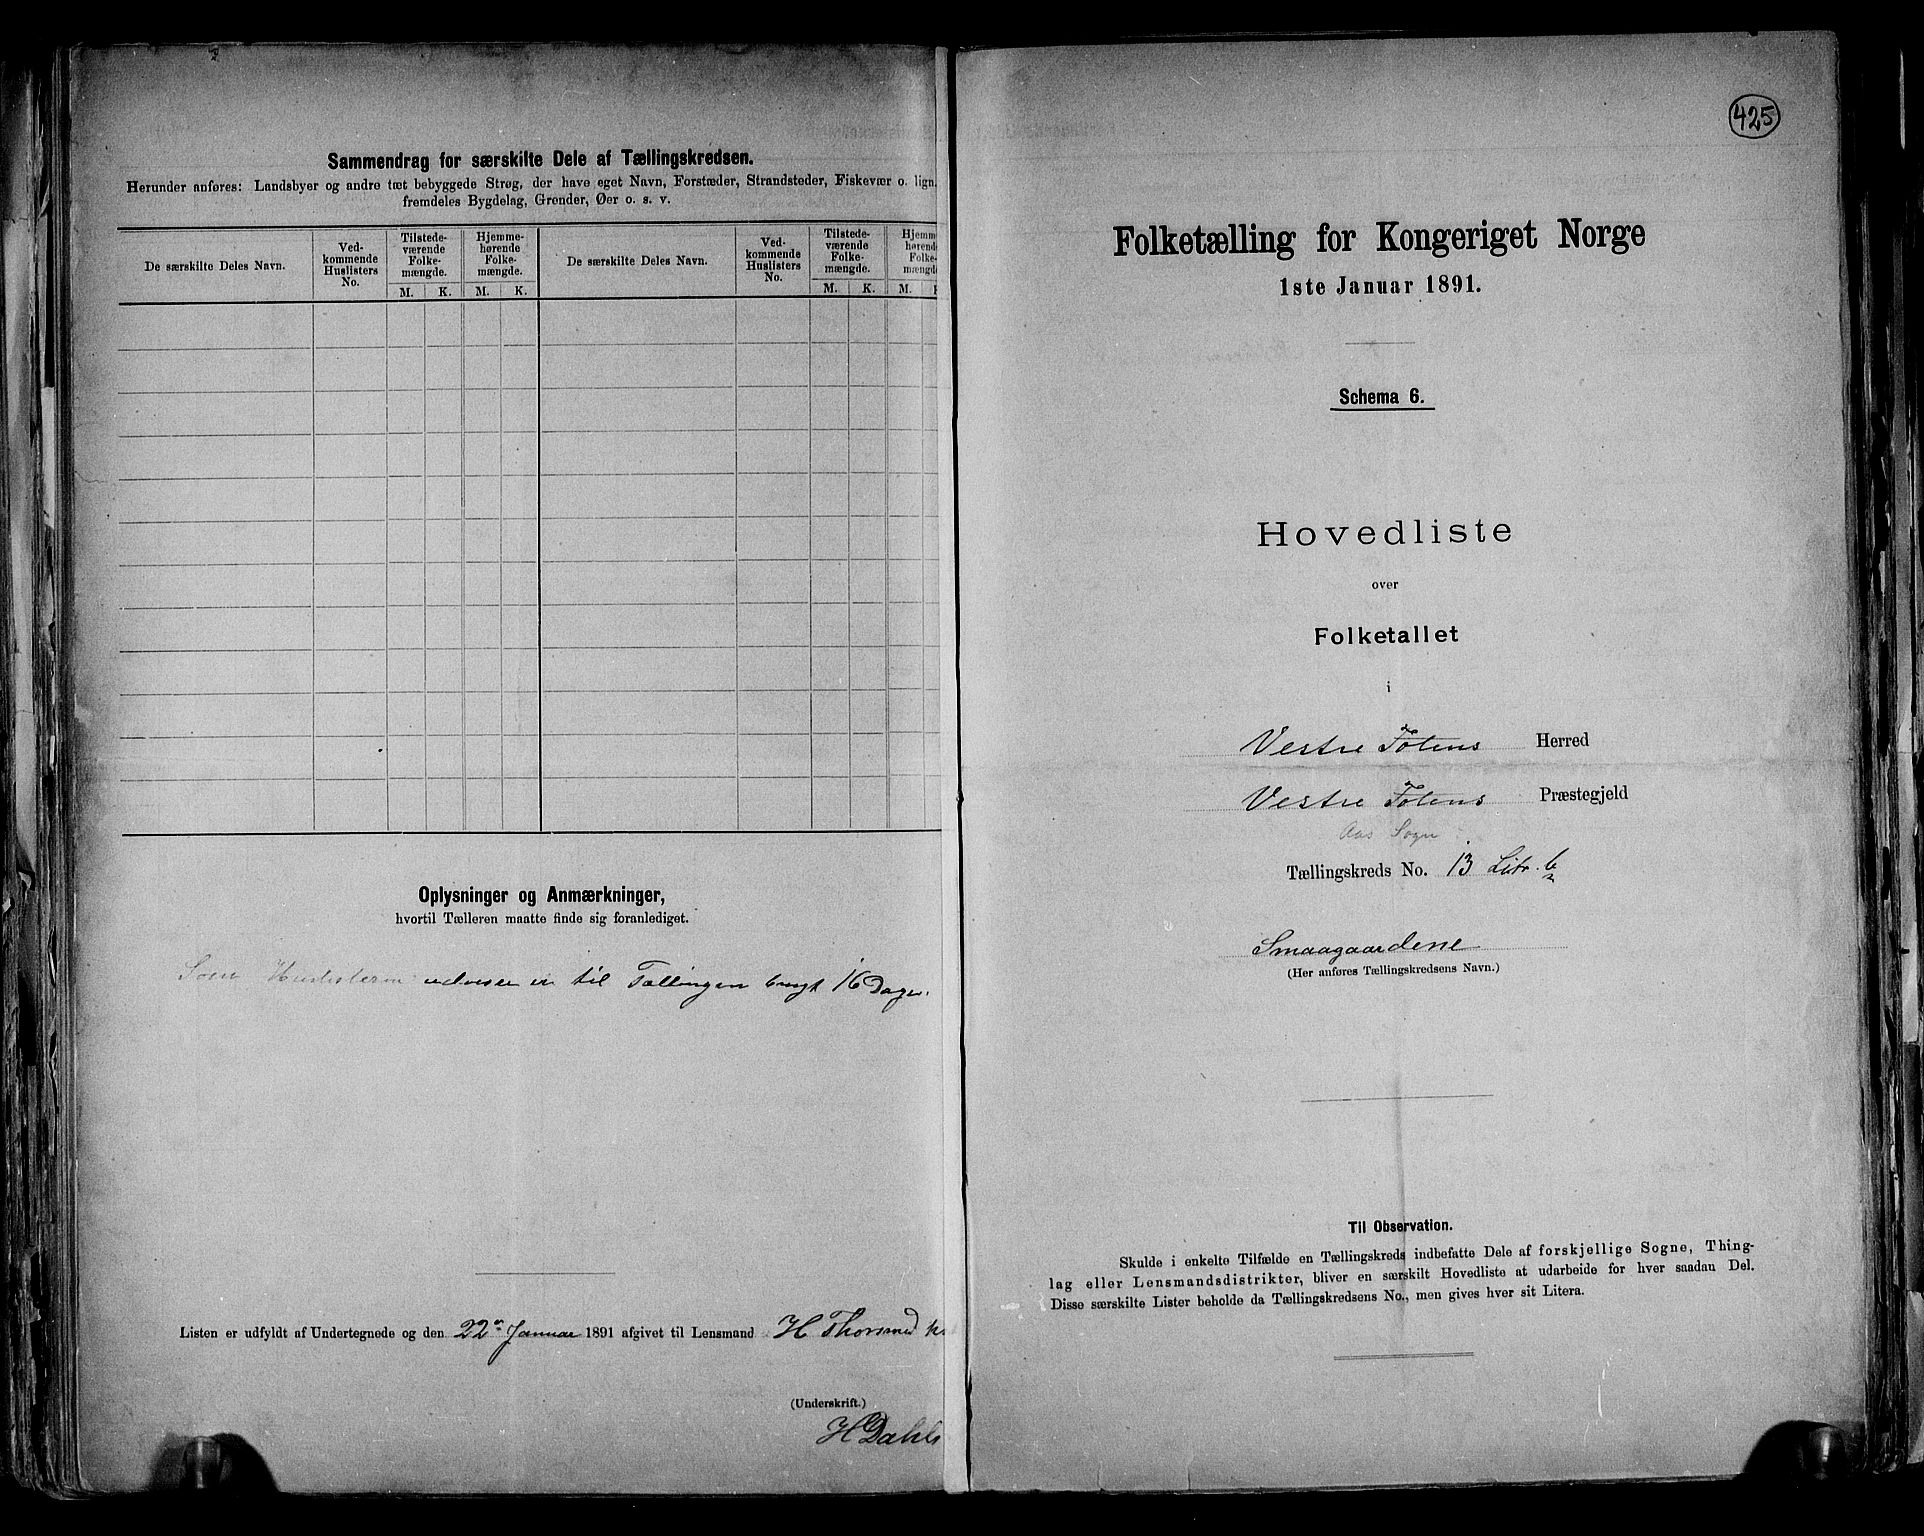 Sammendrag for særskilte Dele af Tællingskredsen.
Herunder anføres: Landsbyer og andre tæt bebyggede Strøg, der have eget Navn, Forstæder, Strandsteder, Fiskevær o. lign.
fremdeles Bygdelag, Grender, Øer o. s. v.
De særskilte Deles Navn.
Ved-
kommende
Huslisters
No.
Tilstede-
værende
Folke-
mængde.
Hjemme-
hørende
Folke-
mængde.
De særskilte Deles Navn.
Ved-
kommende
Huslisters
No.
Tilstede-
værende
Folke-
mængde.
Hjemme
hørende
Folke-
mængde
M. K. M. K. M. K. M.
Oplysninger og Anmærkninger,
hvortil Tælleren maatte finde sig foranlediget.
Som Huslisterne udviser er til Tællingen 16 Dage.
Listen er udfyldt af Undertegnede og den 22n Januar 1891 afgivet til Lensmand H Thorsmed
(Underskrift.)
H Dahl
425
Folketælling for Kongeriget Norge
1ste Januar 1891.
Schema 6.
Hovedliste
over
Folketallet
i
Vestre Totens Herred
Vestre Totens Præstegjeld
Aas Sogn
Tællingskreds No. 13 Litr. b
Smaagaardene
(Her anføres Tællingskredsens Navn.)
Til Observation.
Skulde i enkelte Tilfælde en Tællingskreds indbefatte Dele af forskjellige Sogne, Thing-
lag eller Lensmandsdistrikter, bliver en særskilt Hovedliste at udarbeide for hver saadan Del.
Disse særskilte Lister beholde da Tællingskredsens No., men gives hver sit Litera.